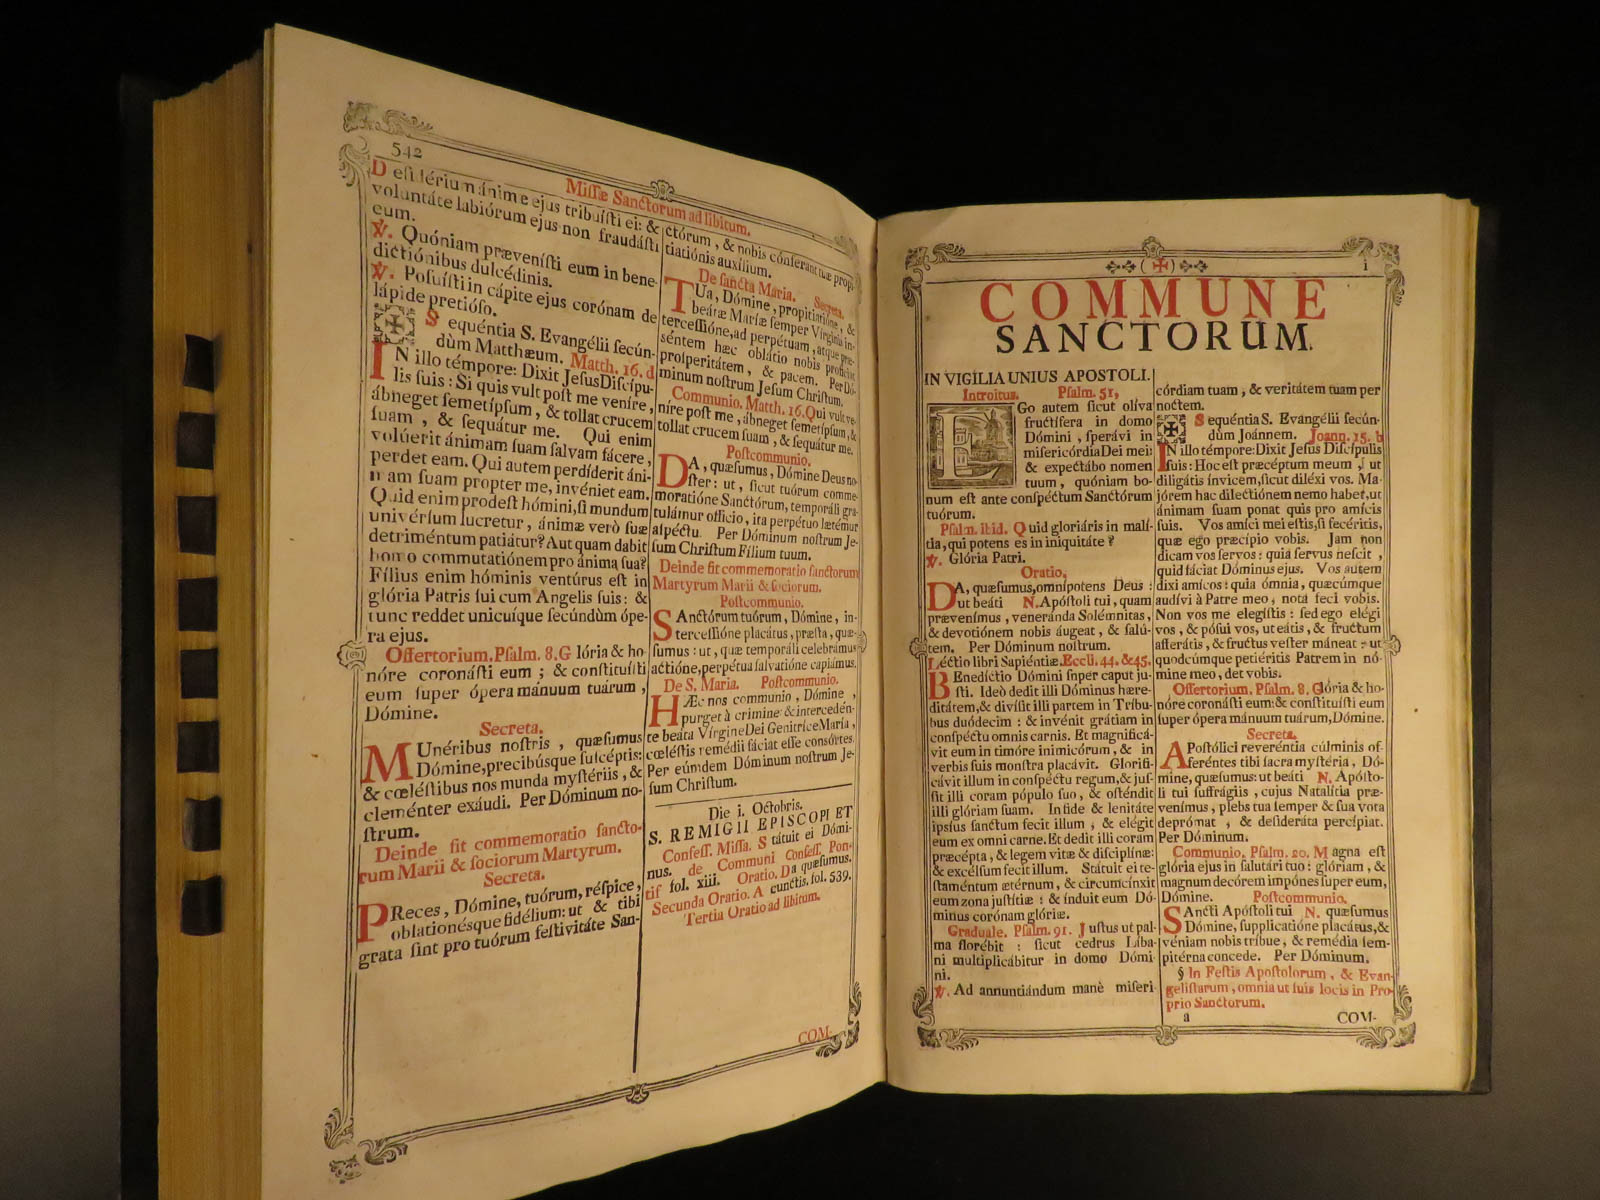 542
Missæ Sanctorum ad libitum.
Desidérium ánimæ ejus tribuísti ei: &
voluntáte labiórum ejus non fraudásti
eum.
℣. Quóniam prævenísti eum in bene-
dictiónibus dulcédinis.
℣. Posuísti in cápite ejus corónam de
lápide pretióso.
Sequéntia S. Evangélii secún-
dùm Matthæum. Matth. 16. d
IN illo témpore: Dixit Jesus Discípu-
lis suis: Si quis vult post me veníre,
ábneget semetípsum, & tollat crucem
suam, & sequátur me. Qui enim
volúerit ánimam suam salvam fácere,
perdet eam. Qui autem perdíderit áni-
mam suam propter me, invéniet eam.
Quid enim prodest hómini, si mundum
univérsum lucretur, ánimæ verò suæ
detriméntum patiátur? Aut quam dabit
homo commutatiónem pro ánima sua?
Fílius enim hóminis ventúrus est in
glória Patris sui cum Angelis suis: &
tunc reddet unicuíque secúndùm ópe-
ra ejus.
Offertorium. Psalm. 8. Glória & ho-
nóre coronásti eum; & constituísti
eum super ópera mánuum tuárum,
Dómine.
Secreta.
MUnéribus nostris, quæsumus
Dómine, precibúsque suscéptis:
& cœléstibus nos munda mystériis, &
cleménter exáudi. Per Dóminum no-
strum.
Deinde fit commemoratio sancto-
rum Marii & sociorum Martyrum.
Secreta.
PReces, Dómine, tuórum, réspice,
oblationésque fidélium: ut & tibi
grata sint pro tuórum festivitáte San-
ctórum, & nobis cónferant tuæ propi-
tiatiónis auxílium.
De sancta Maria. Secreta.
TUa, Dómine, propitiatióne, &
beátæ Maríæ semper Vírginis in-
tercessióne, ad perpétuam, atque præ-
séntem hæc oblátio nobis profíciat
prosperitátem, & pacem. Per Dó-
minum nostrum Jesum Christum.
Communio. Matth. 16. Qui vult ve-
níre post me, ábneget semetípsum, &
tollat crucem suam, & sequátur me.
Postcommunio.
DA, quæsumus, Dómine Deus no-
ster: ut, sicut tuórum comme-
moratióne Sanctórum, temporáli gra-
tulámur officio, ita perpétuo lætémur
aspéctu. Per Dóminum nostrum Je-
sum Christum Filium tuum.
Deinde fit commemoratio sanctorum
Martyrum Marii & sociorum.
Postcommunio.
SAnctórum tuórum, Dómine, in-
tercessióne placátus, præsta, quæ-
sumus: ut, quæ temporáli celebrámus
actióne, perpétua salvatióne capiámus.
De S. Maria. Postcommunio.
HÆc nos communio, Dómine,
purget à crimine: & interceden-
te beáta Vírgine Dei Genitríce María,
cœléstis remédii fáciat esse consórtes.
Per eúmdem Dóminum nostrum Je-
sum Christum.
Die i. Octobris.
S. REMIGII EPISCOPI ET
Confess. Missa. Státuit ei Dómi-
nus. de Communi Confess. Pon-
tif fol. xiii. Oratio. Da quæsumus.
Secunda Oratio. A cunctis. fol. 539.
Tertia Oratio ad libitum.
COM-
i
COMMUNE
SANCTORUM.
IN VIGILIA UNIUS APOSTOLI.
Introitus. Psalm. 51,
EGo autem sicut olíva
fructífera in domo
Dómini, sperávi in
misericórdia Dei mei:
& expectábo nomen
tuum, quóniam bo-
num est ante conspéctum Sanctórum
tuórum.
Psalm. ibid. Quid gloriáris in malí-
tia, qui potens es in iniquitáte?
℣. Glória Patri.
Oratio.
DA, quæsumus, omnípotens Deus:
ut beáti N. Apóstoli tui, quam
prævenímus, veneránda Solémnitas,
& devotiónem nobis áugeat, & salú-
tem. Per Dóminum nostrum.
Léctio libri Sapiéntiæ. Eccli. 44. & 45.
BEnedíctio Dómini super caput ju-
sti. Ideò dedit illi Dóminus hære-
ditátem, & divísit illi partem in Tríbu-
bus duódecim: & invénit grátiam in
conspéctu omnis carnis. Et magnificá-
vit eum in timóre inimicórum, & in
verbis suis monstra placávit. Glorifi-
cávit illum in conspéctu regum, & jus-
sit illi coram pópulo suo, & osténdit
illi glóriam suam. In fide & lenitáte
ipsíus sanctum fecit illum, & elégit
eum ex omni carne. Et dedit illi coram
præcépta, & legem vitæ & disciplínæ:
& excélsum fecit illum. Státuit ei te-
staméntum ætérnum, & circumcínxit
eum zona justítiæ: & índuit eum Dó-
minus corónam glóriæ.
Graduale. Psalm. 91. Justus ut pal-
ma florébit: sicut cedrus Líba-
ni multiplicábitur in domo Dómi-
ni.
℣. Ad annuntiándum manè miseri-
córdiam tuam, & veritátem tuam per
noctem.
Sequéntia S. Evangélii secún-
dùm Joánnem. Joann. 15. b
IN illo témpore: Dixit Jesus Discípulis
suis: Hoc est præcéptum meum, ut
diligátis ínvicem, sicut diléxi vos. Ma-
jórem hac dilectiónem nemo habet, ut
ánimam suam ponat quis pro amícis
suis. Vos amíci mei estis, si fecéritis,
quæ ego præcípio vobis. Jam non
dicam vos servos: quia servus nescit,
quid fáciat Dóminus ejus. Vos autem
dixi amícos: quia ómnia, quæcúmque
audívi à Patre meo, nota feci vobis.
Non vos me elegístis: sed ego elégi
vos, & pósui vos, ut eátis, & fructum
afferátis, & fructus vester máneat: ut
quodcúmque petiéritis Patrem in nó-
mine meo, det vobis.
Offertorium. Psalm. 8. Glória & ho-
nóre coronásti eum: & constituísti eum
super ópera mánuum tuárum, Dómine.
Secreta.
APostólici reveréntia cúlminis of-
feréntes tibi sacra mystéria, Dó-
mine, quæsumus: ut beáti N. Apósto-
li tui suffrágiis, cujus Natalítia præ-
venímus, plebs tua semper & sua vota
deprómat, & desideráta percípiat.
Per Dóminum.
Communio. Psalm. 20. Magna est
glória ejus in salutári tuo: glóriam, &
magnum decórem impónes super eum,
Dómine. Postcommunio.
SAncti Apóstoli tui N. quæsumus
Dómine, supplicatióne placátus, &
véniam nobis tríbue, & remédia sem-
pitérna concede. Per Dóminum.
§ In Festis Apostolorum, & Evan-
gelistarum, omnia ut suis locis in Pro-
prio Sanctorum.
a COM-